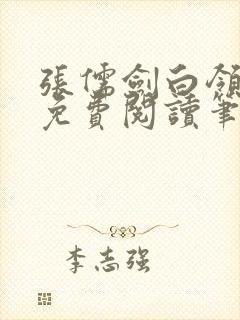 張儒劍白領
免費閱讀筆
李志强